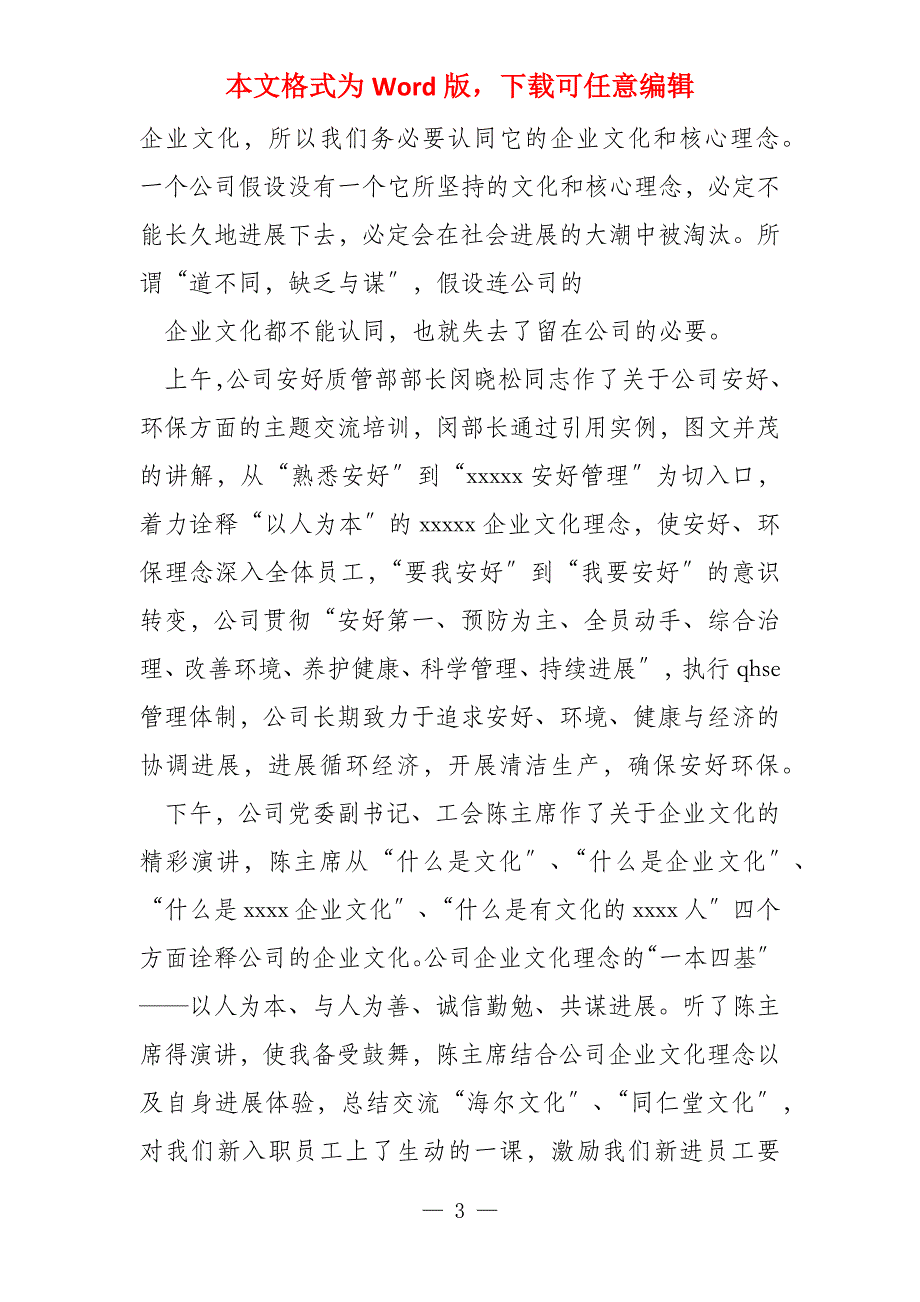 本文格式为 Word 版，下载可任意编辑
企业文化，所以我们务必要认同它的企业文化和核心理念。
一个公司假设没有一个它所坚持的文化和核心理念，必定不
能长久地进展下去，必定会在社会进展的大潮中被淘汰。所
谓“道不同，缺乏与谋〞，假设连公司的
企业文化都不能认同，也就失去了留在公司的必要。
上午,公司安好质管部部长闵晓松同志作了关于公司安好、
环保方面的主题交流培训，闵部长通过引用实例，图文并茂
的讲解，从“熟悉安好〞到“xxxxx 安好管理〞为切入口，
着力诠释“以人为本〞的 xxxxx 企业文化理念，使安好、环
保理念深入全体员工，“要我安好〞到“我要安好〞的意识
转变，公司贯彻“安好第一、预防为主、全员动手、综合治
理、改善环境、养护健康、科学管理、持续进展〞,执行 qhse
管理体制，公司长期致力于追求安好、环境、健康与经济的
协调进展，进展循环经济，开展清洁生产，确保安好环保。
下午，公司党委副书记、工会陈主席作了关于企业文化的
精彩演讲，陈主席从“什么是文化〞、“什么是企业文化〞、
“什么是 xxxx 企业文化〞、“什么是有文化的 xxxx 人〞四个
方面诠释公司的企业文化。公司企业文化理念的“一本四基〞
——以人为本、与人为善、诚信勤勉、共谋进展。听了陈主
席得演讲，使我备受鼓舞，陈主席结合公司企业文化理念以
及自身进展体验，总结交流“海尔文化〞、“同仁堂文化〞，
对我们新入职员工上了生动的一课，激励我们新进员工要
— 3 —